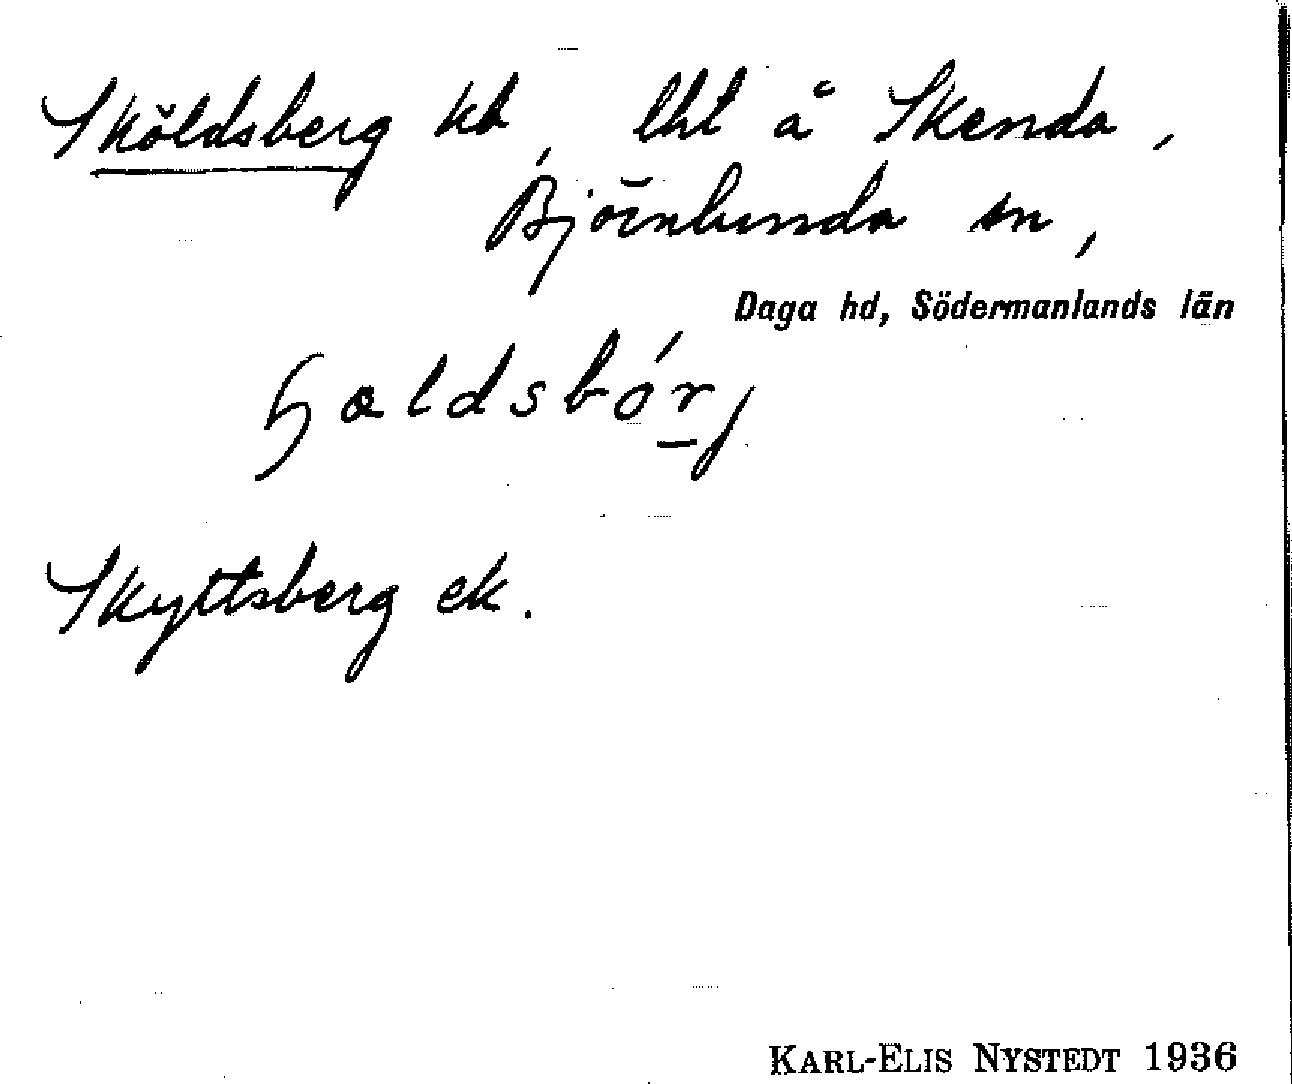 Sköldsberg kb, lht å Skenda,
Björnlunda sn,
Daga hd, Södermanlands län
Skyttsberg ek.
KARL-ELIS NYSTEDT 1936